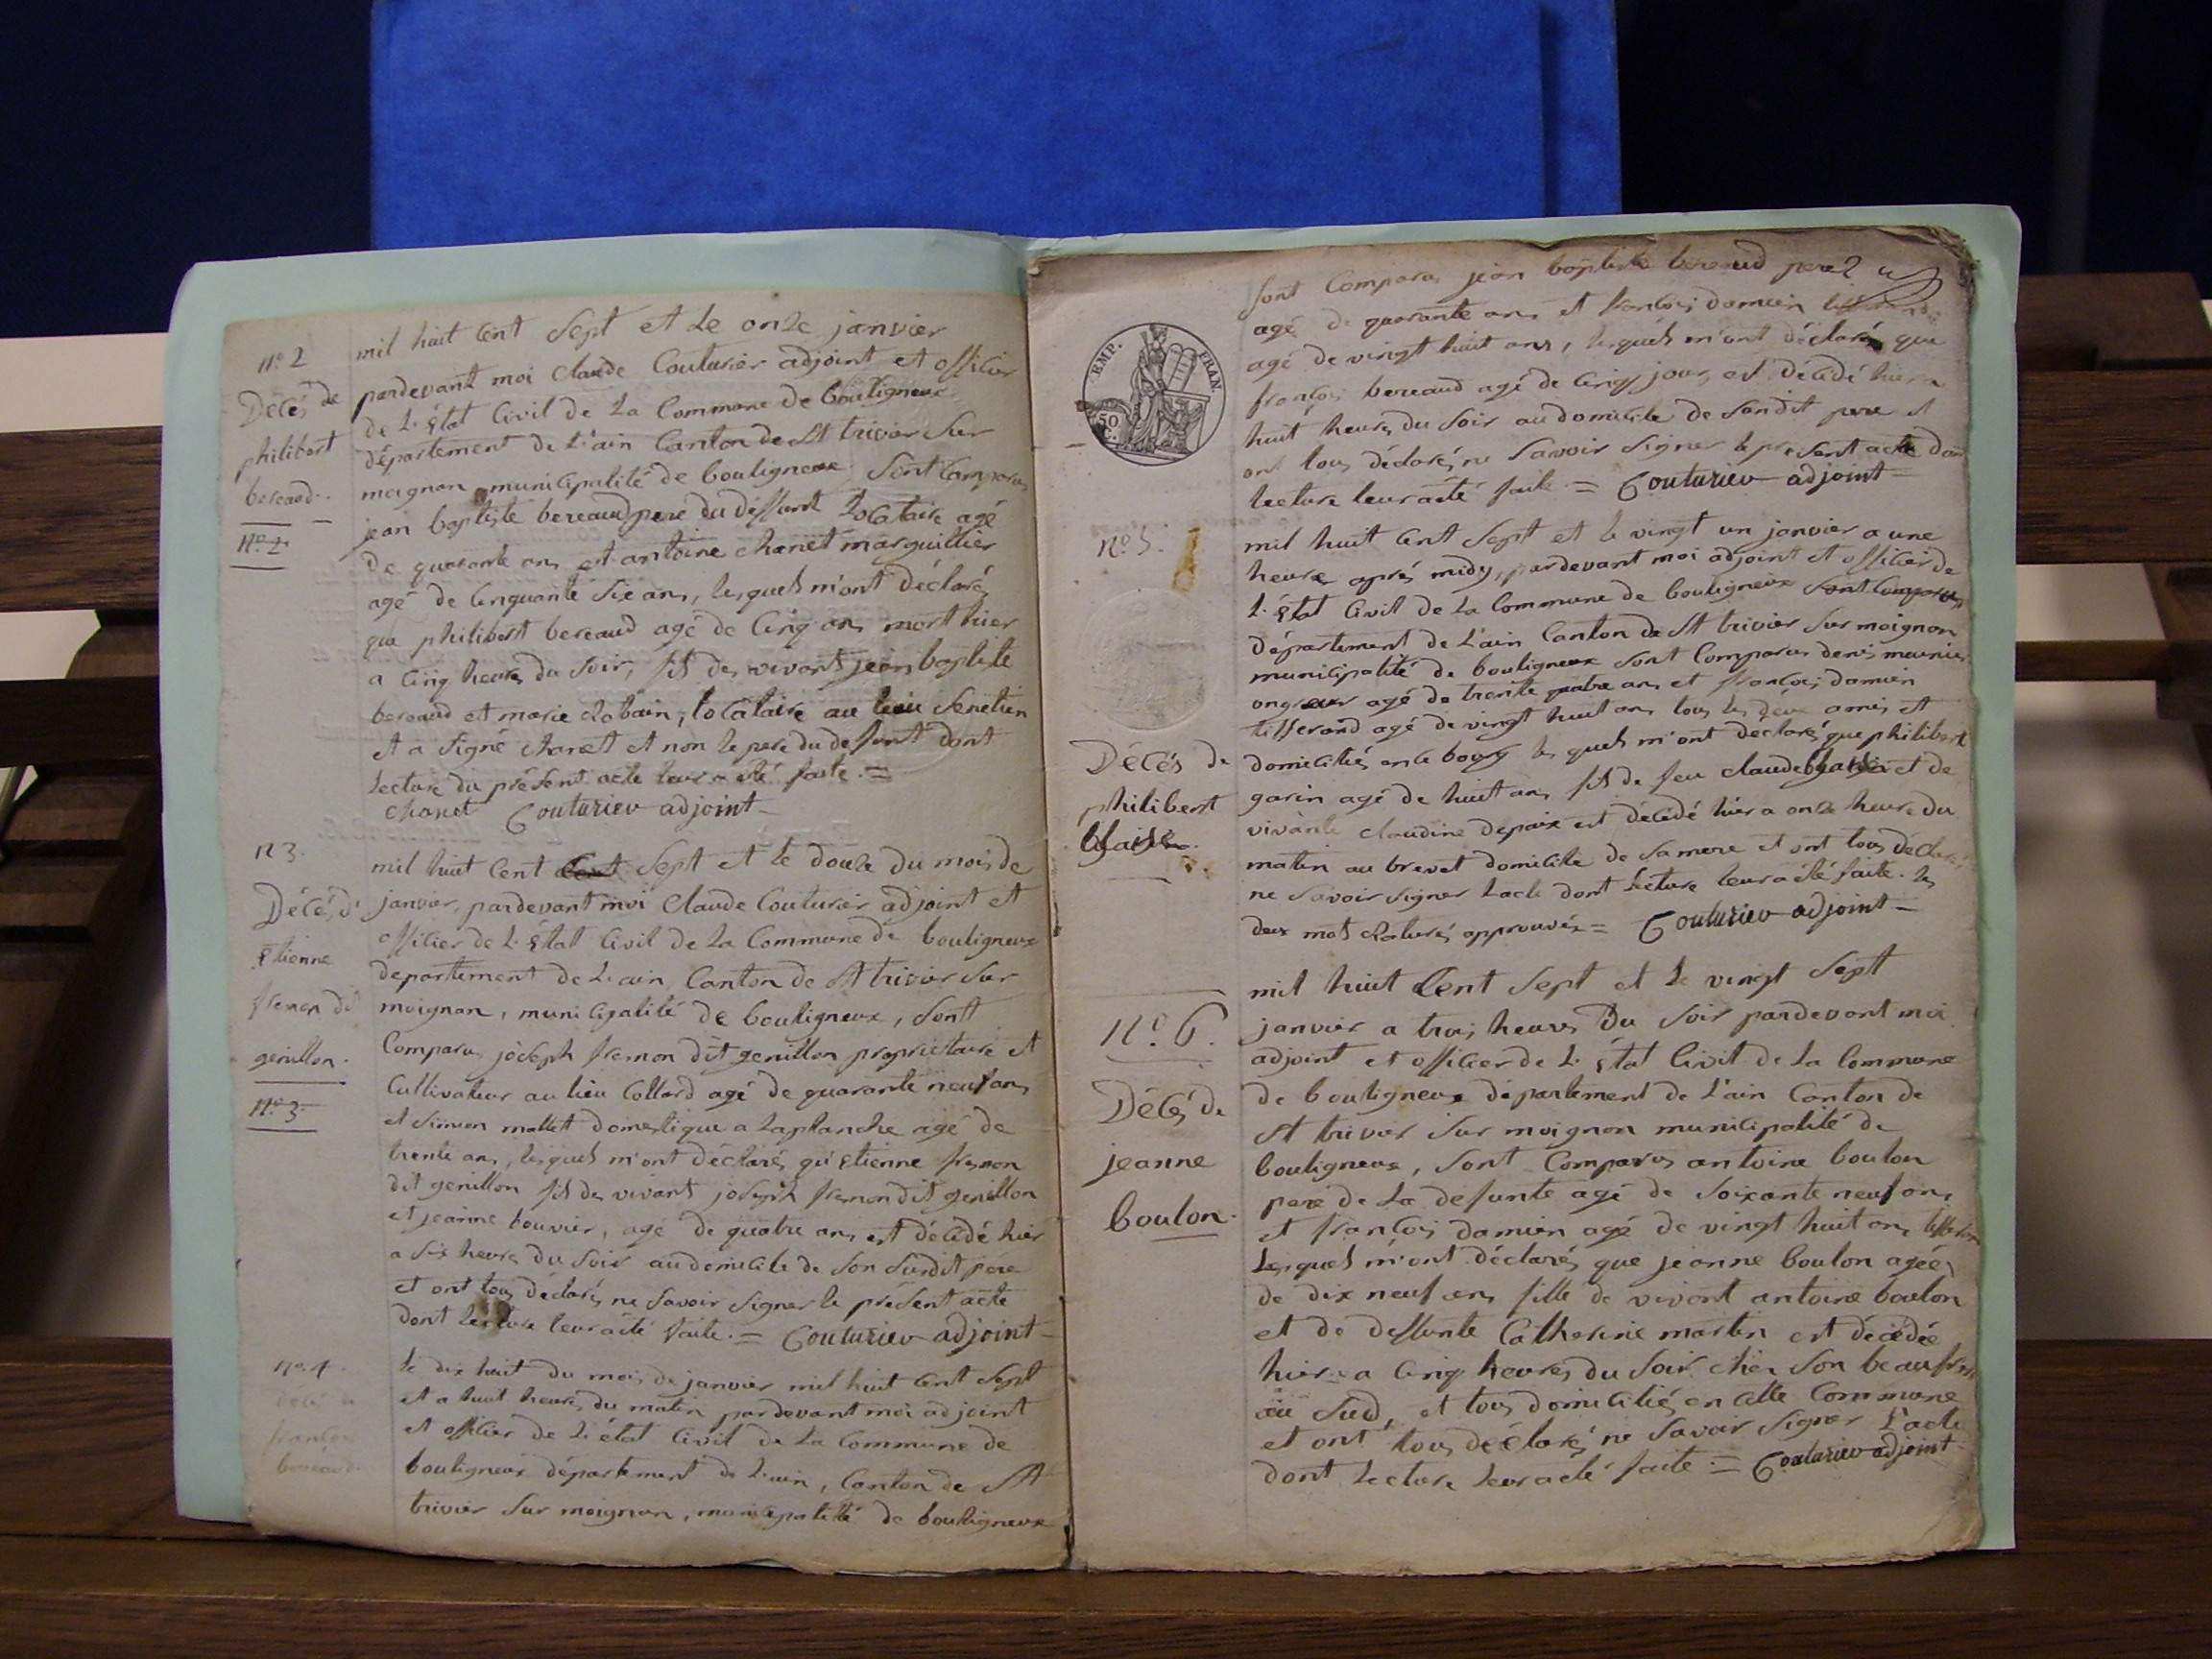 n.o 2
Décés de
philibert
bereaud.
N.o 2
mil huit Cent Sept et Le onze janvier
pardevant moi Claude Couturier adjoint et officier
de L'état Civil de La Commune de bouligneux
département de L'ain Canton de St trivier Sur
moignan municipalité de bouligneux Sont Comparus
jean baptiste bereaud pere du deffunt Locataire agé
de quarante ans et antoine chanet marguillier
agé de Cinquante Six ans, lesquels m'ont Déclarés
que philibert bereaud agé de Cinq ans mort hier
a Cinq heures du Soir, fils des vivants jean baptiste
bereaud et marie Robain, locataire au lieu
et a Signé chanet et non le pere du defunt dont
Lecture du présent acte leur a été faite. =
chanet Couturier adjoint
n 3.
Décés d'
Etienne
fremon dit
genillon.
N.o 3
mil huit Cent Cent Sept et le douze du mois de
janvier, pardevant moi Claude Couturier adjoint et
officier de L'état Civil de La Commune de bouligneux
departement de L'ain, Canton de St trivier Sur
moignan, municipalité de bouligneux, Sont
Comparus joseph fremon dit genillon proprietaire et
Cultivateur au lieu Collard agé de quarante neuf ans
et Simon mallet domestique a Laplanche agé de
trente ans, lesquels m'ont Déclarés qu'etienne fremon
dit genillon fils des vivants joseph fremon dit genillon
et jeanne bouvier, agé de quatre ans est décédé hier
a Six heures du Soir au domicile de Son Susdit pere
et ont tous déclarés ne Savoir Signer le présent acte
dont Lecture leur a été faite. = Couturier adjoint
n.o 4.
décés de
françois
bereaud.
le dix huit du mois de janvier mil huit Cent Sept
et a huit heures du matin pardevant moi adjoint
et officier de L'état Civil de La Commune de
bouligneux département de L'ain, Canton de St
trivier Sur moignan, municipalité de bouligneux
EMP. FRAN.
50
C.
Sont Comparus jean baptiste bereaud pere
agé de quarante ans et françois damien tisserand
agé de vingt huit ans, lesquels m'ont déclarés que
françois bereaud agé de Cinq jours est décédé hier a
huit heures du Soir au domicile de Sondit pere et
ont tous déclarés ne Savoir Signer le présent acte dont
lecture leur a été faite = Couturier adjoint
N.o 5.
Décés de
philibert
blaise
mil huit Cent Sept et le vingt un janvier a une
heure aprés midy, pardevant moi adjoint et officier de
L'état Civil de La Commune de bouligneux Sont Comparus
département de L'ain Canton de St trivier Sur moignan
municipalité de bouligneux Sont Comparus denis meunier
agé de trente quatre ans et françois damien
tisserand agé de vingt huit ans tous les deux amis et
domiciliés en le bourg les quels m'ont déclarés que philibert
garin agé de huit ans fils de feu claude et de
vivante claudine depaix est décédé hier a onze heure du
matin au brevet domicile de Sa mere et ont tous déclarés
ne Savoir Signer L'acte dont Lecture leur a été faite. les
deux mots raturés approuvés = Couturier adjoint
N.o 6.
Décés de
jeanne
boulon.
mil huit Cent Sept et le vingt Sept
janvier a trois heures Du Soir pardevant moi
adjoint et officier de L'état Civil de La Commune
de bouligneux département de L'ain Canton de
St trivier Sur moignan municipalité de
bouligneux, Sont Comparus antoine boulon
pere de La defunte agé de Soixante neuf ans
et françois damien agé de vingt huit ans tisserand
Lesquels m'ont déclarés que jeanne boulon agée
de dix neuf ans fille de vivant antoine boulon
et de deffunte Catherine martin est décédée
hier a Cinq heures du Soir chés Son beau frere
au Sud, et tous domiciliés en cette Commune
et ont tous déclarés ne Savoir Signer L'acte
dont Lecture leur a été faite = Couturier adjoint